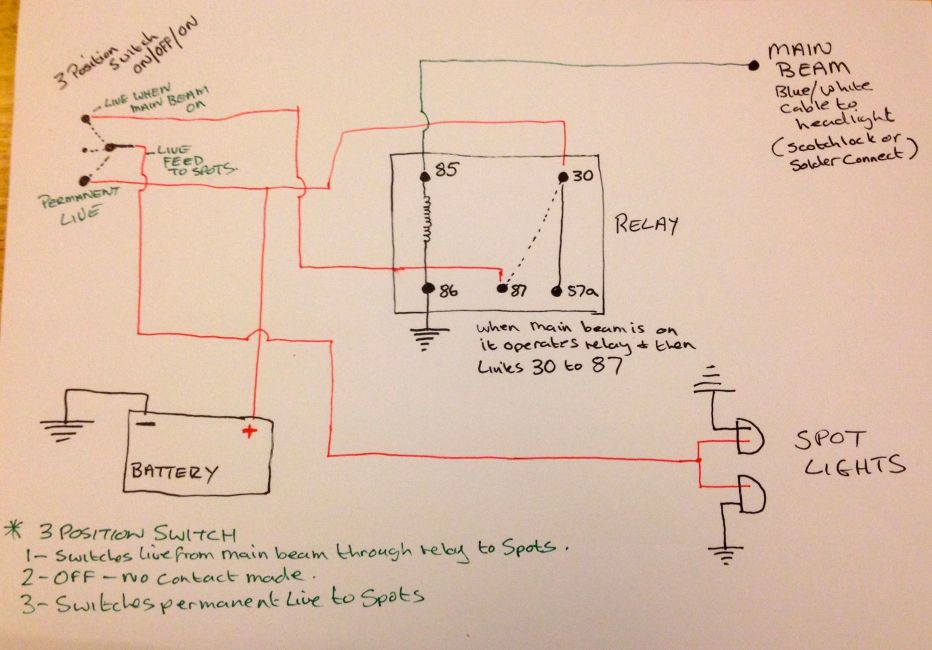 3 Position
Switch
ON/OFF/ON
LIVE WHEN
MAIN BEAM
ON
LIVE
FEED
TO SPOTS.
PERMANENT
LIVE
MAIN
BEAM
Blue/White
Cable to
headlight
(Scotchlock or
Solder Connect)
85
30
RELAY
86
87
57a
when main beam is on
it operates relay & then
Links 30 to 87
- +
BATTERY
SPOT
LIGHTS
* 3 POSITION SWITCH
1- Switches Live from main beam through relay to Spots.
2- OFF - no contact made.
3- Switches permanent Live to Spots